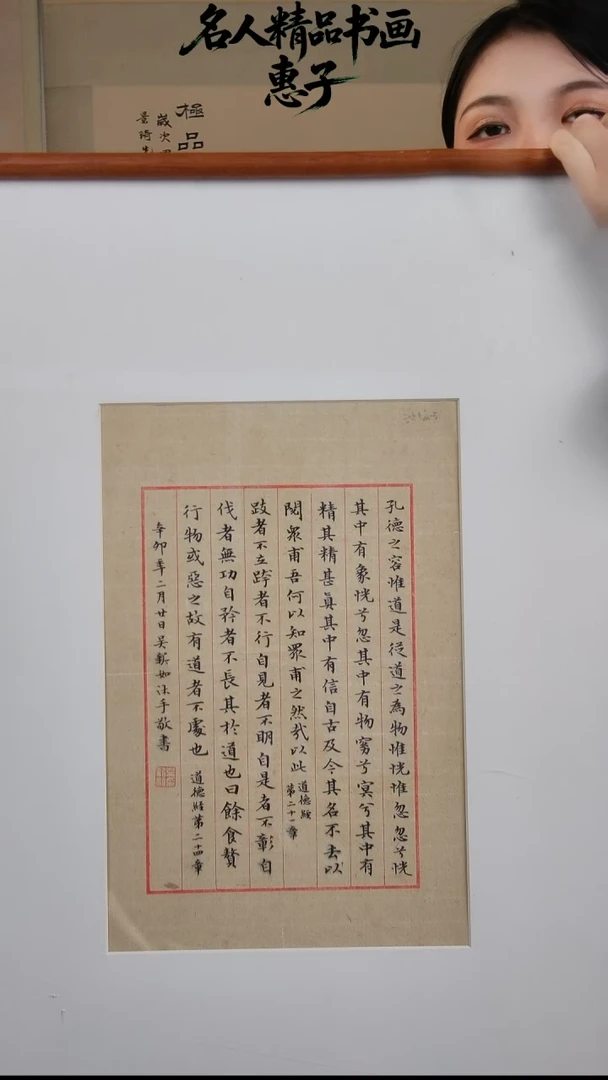 名人精品书画
惠子
極品
歲次
孔德之容惟道是從道之為物惟恍惟忽忽兮恍
其中有象恍兮忽其中有物窈兮冥兮其中有
精其精甚真其中有信自古及今其名不去以
閱眾甫吾何以知眾甫之然哉以此 道德經
第二十一章
跂者不立跨者不行自見者不明自是者不彰自
伐者無功自矜者不長其於道也曰餘食贅
行物或惡之故有道者不處也 道德經第二十四章
辛卯年二月廿日吳蘇如法手敬書